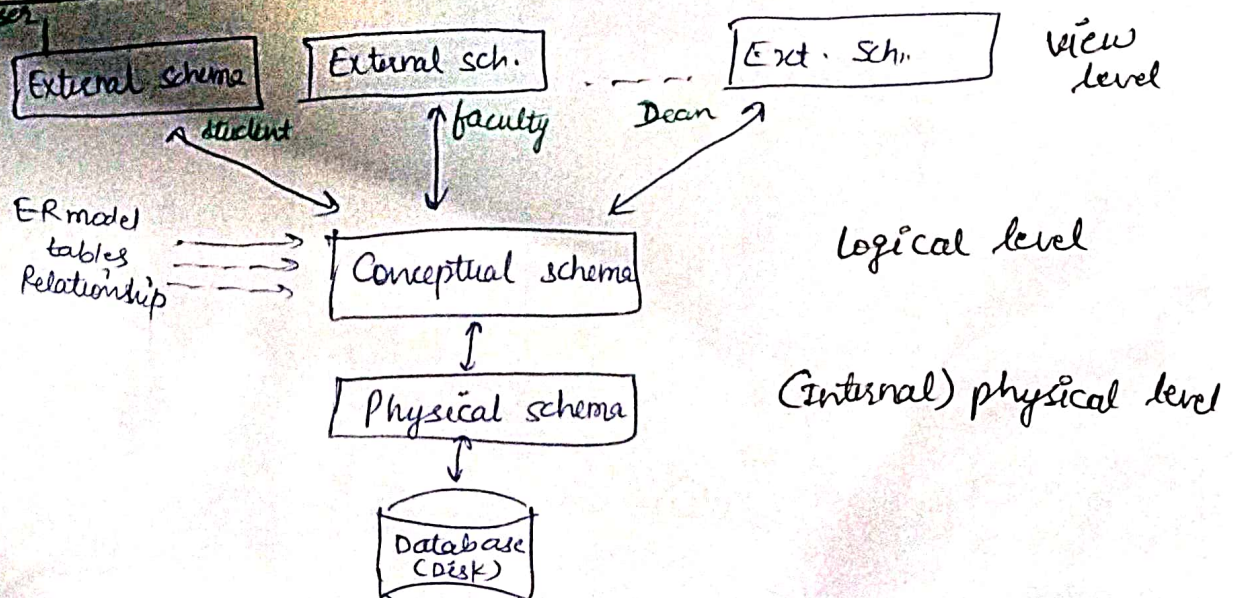 User
External schema
External sch.
Ext. Sch.
view
level
student
faculty
Dean
E-R model
tables
Relationship
Conceptual schema
Logical level
Physical schema
(Internal) physical level
Database
(Disk)